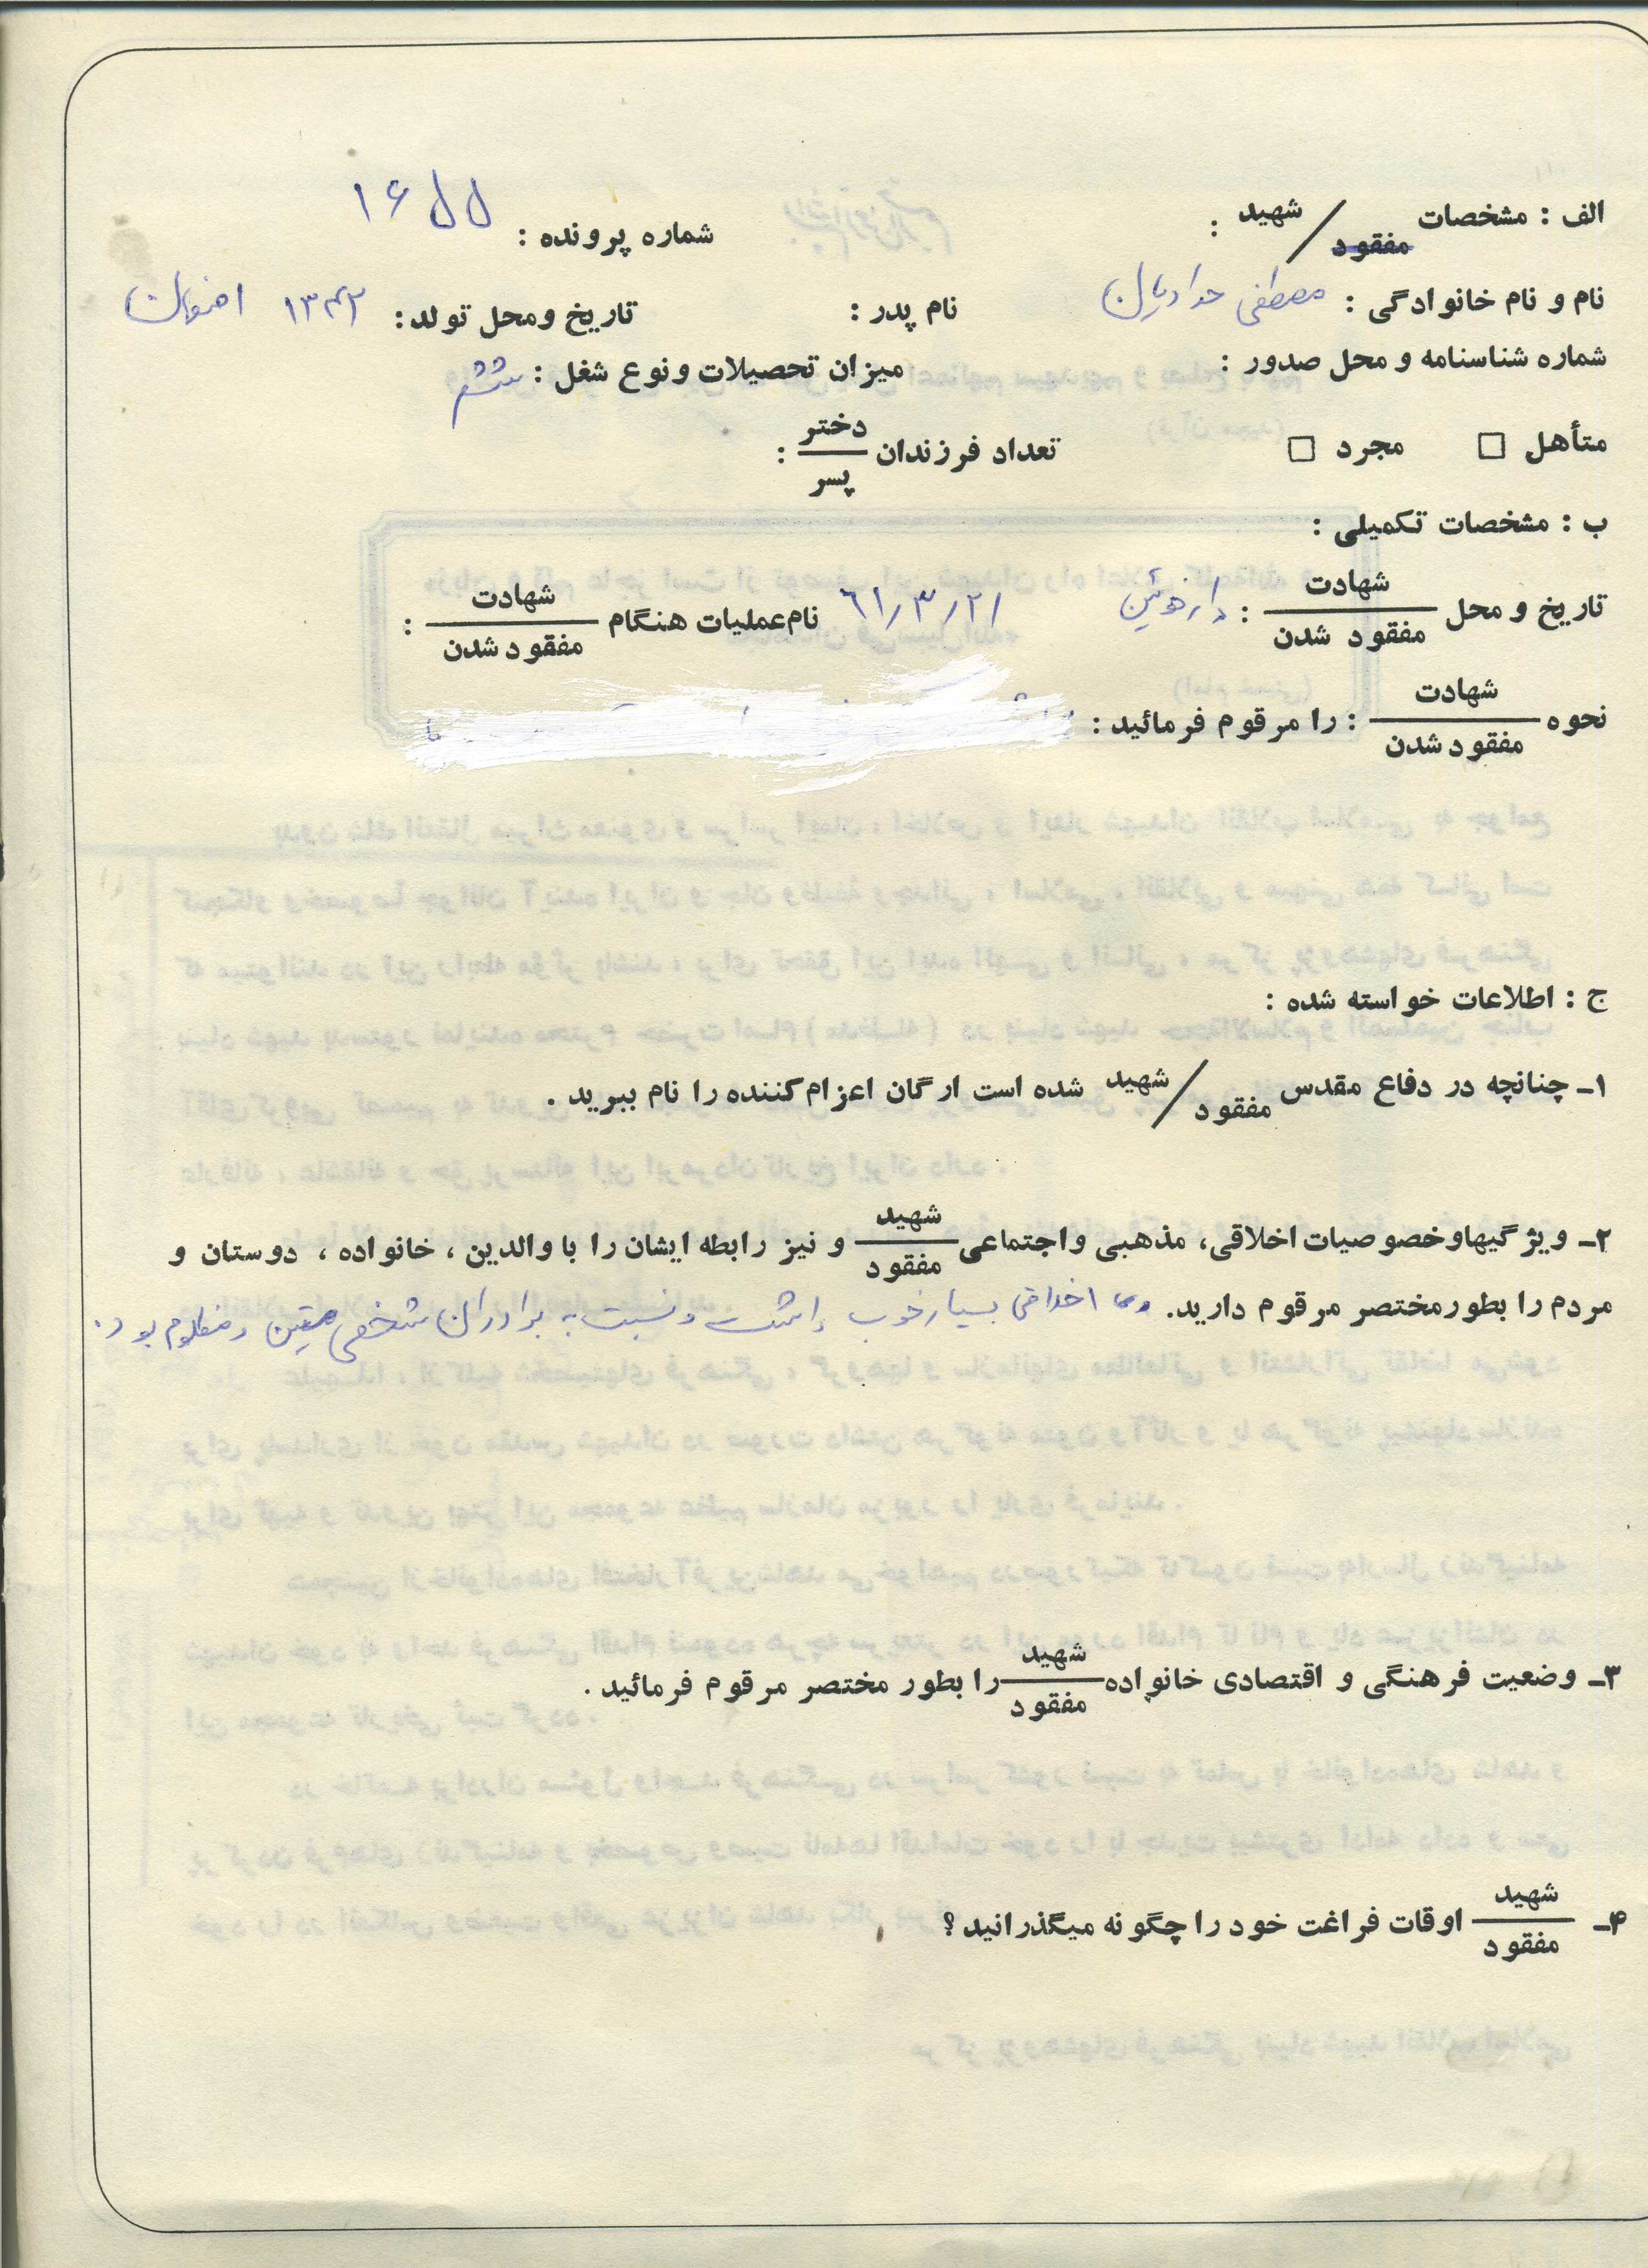 الف : مشخصات شهید / مفقود :
شماره پرونده :
نام و نام خانوادگی : مصطفی حدادیان
نام پدر :
تاریخ ومحل تولد : ۱۳۴۲
شماره شناسنامه و محل صدور :
میزان تحصیلات ونوع شغل : ششم
متأهل □ مجرد □
تعداد فرزندان دختر / پسر :
ب : مشخصات تکمیلی :
تاریخ و محل شهادت / مفقود شدن : دارخوئین ۶۱/۳/۲۱ نام عملیات هنگام شهادت / مفقود شدن :
نحوه شهادت / مفقود شدن : را مرقوم فرمائید :
ج : اطلاعات خواسته شده :
۱ـ چنانچه در دفاع مقدس شهید / مفقود شده است ارگان اعزام کننده را نام ببرید .
۲ـ ویژگیها وخصوصیات اخلاقی، مذهبی واجتماعی شهید / مفقود و نیز رابطه ایشان را با والدین ، خانواده ، دوستان و
مردم را بطور مختصر مرقوم دارید. اخلاقی بسیار خوب داشت و نسبت به برادران شخصی متین و مظلوم بود.
۳ـ وضعیت فرهنگی و اقتصادی خانواده شهید / مفقود را بطور مختصر مرقوم فرمائید .
۴ـ شهید / مفقود اوقات فراغت خود را چگونه میگذرانید ؟